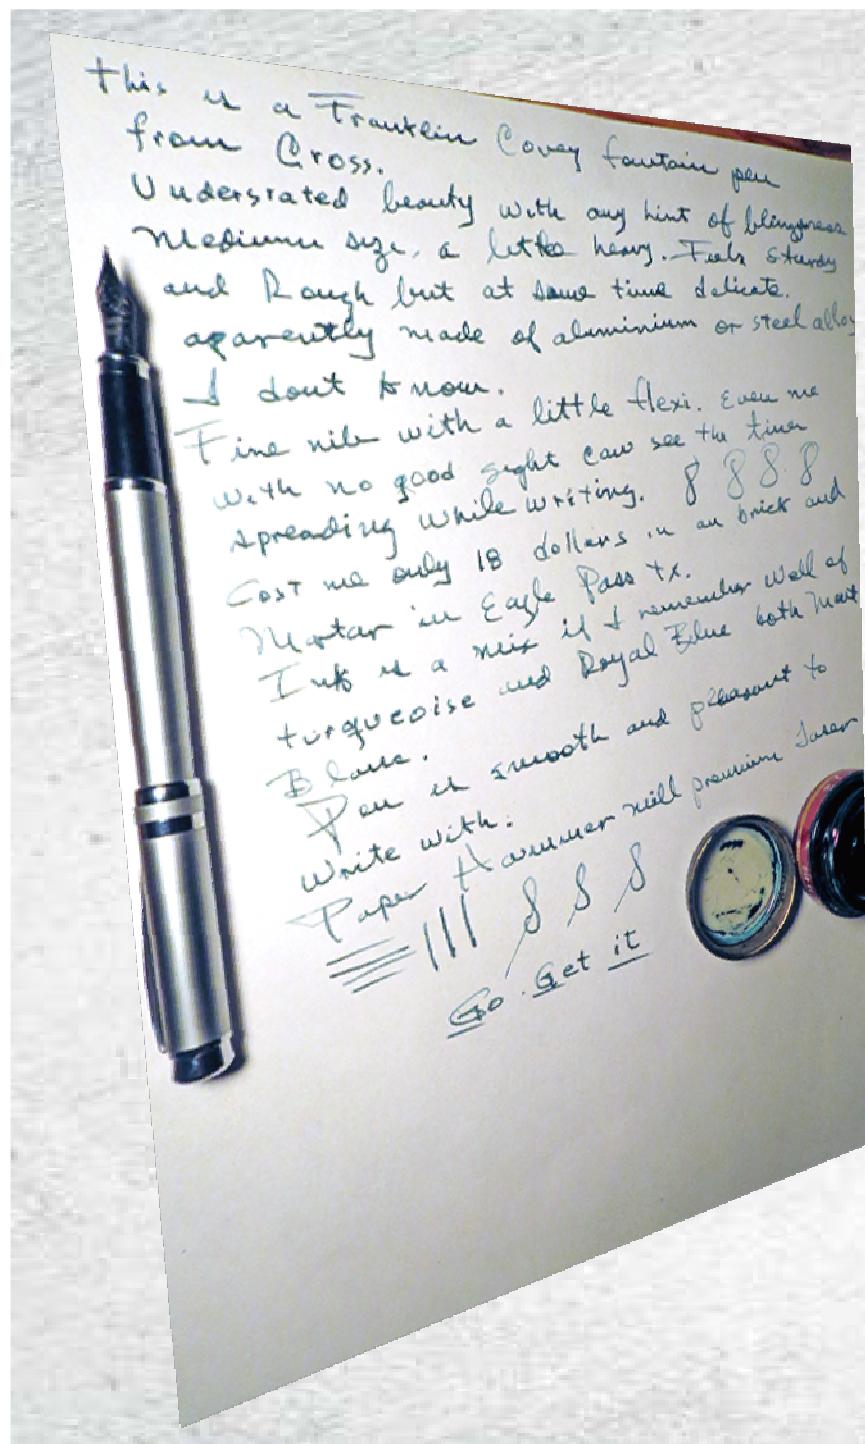 This is a Franklin Covey fountain pen
from Cross.
Undersrated beauty with any hint of blingness
Medium size, a little heavy. Feels sturdy
and Rough but at same time delicate.
aparently made of aluminium or steel alloy
I dont know.
Fine nib with a little flexi. Even me
with no good sight can see the tines
spreading while writing. 8 8 8 8
Cost me only 18 dollars in an brick and
Mortar in Eagle Pass tx.
Ink is a mix if I remember well of
turqueoise and Royal Blue both Mont
Blanc.
Pen is smooth and pleasant to
write with.
Paper Hammer mill premium laser
Go Get it